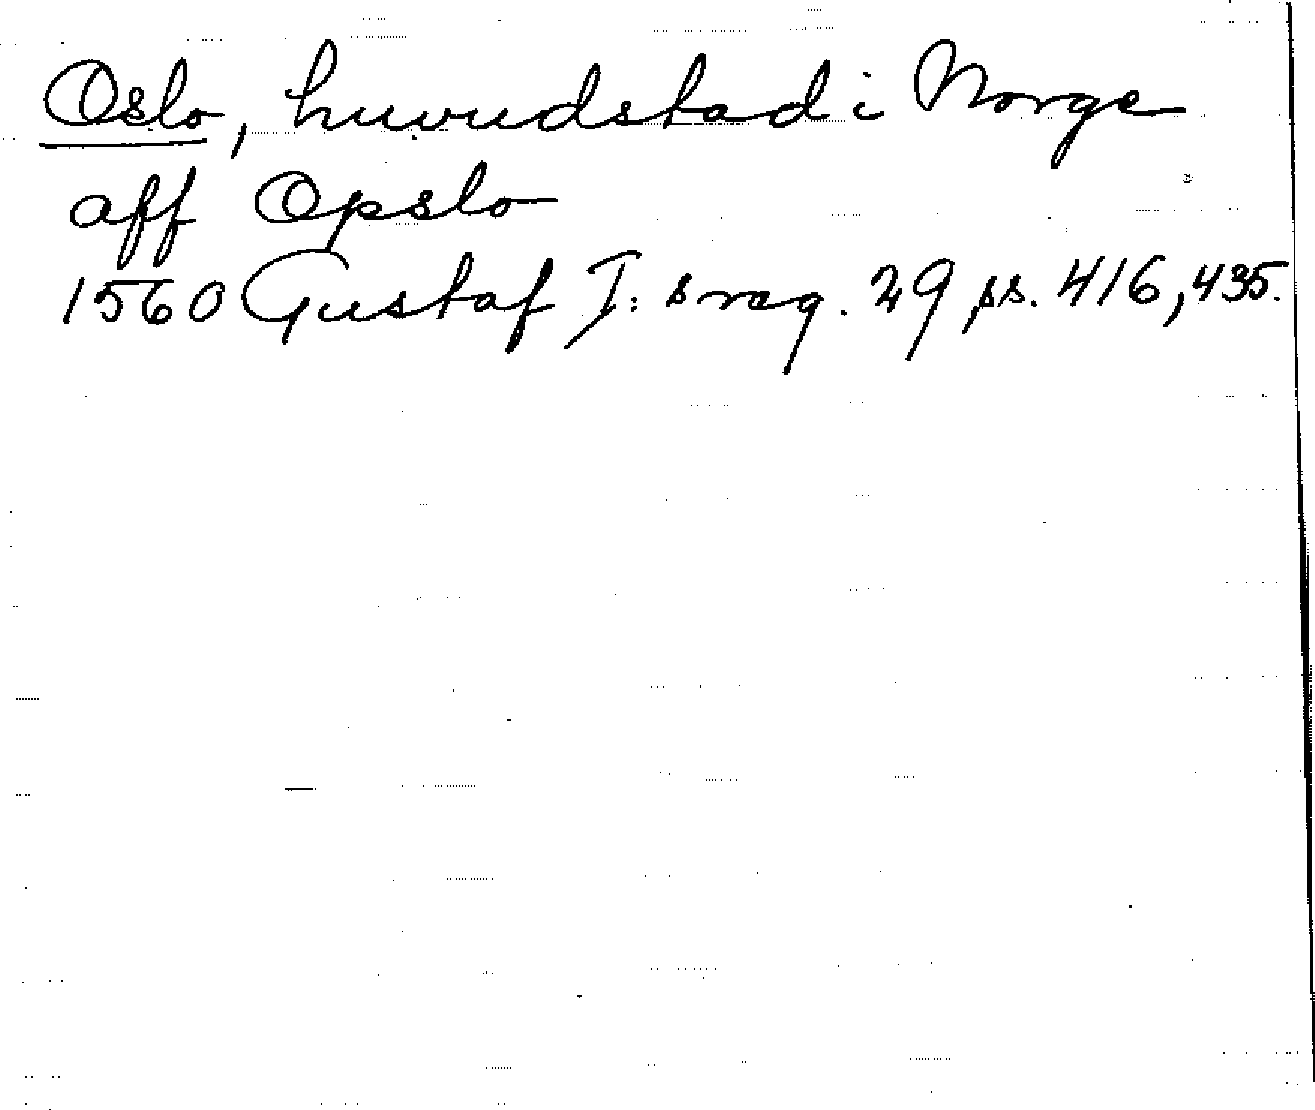 Oslo, huvudstad i Norge
aff Opslo
1560 Gustaf I:s reg. 29, ss. 416, 435.